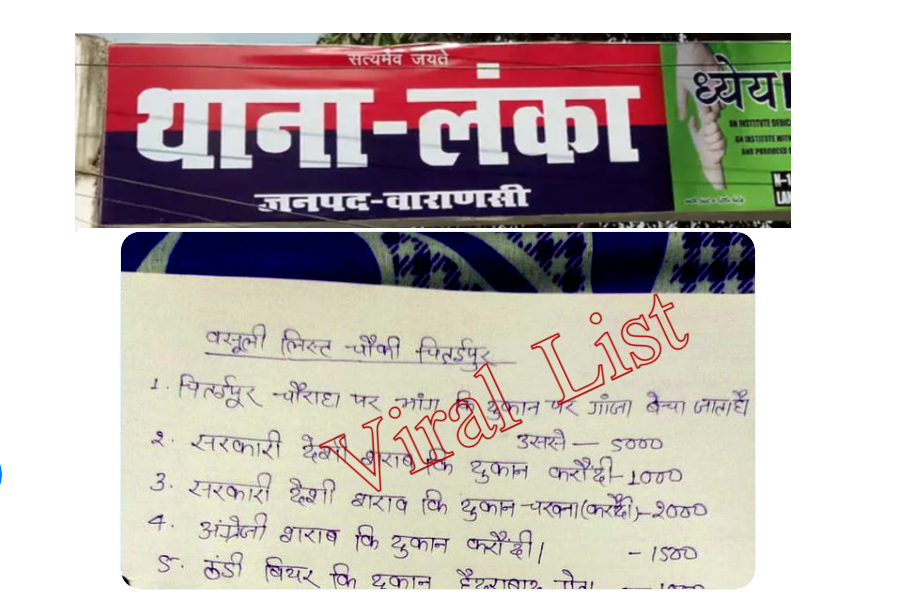 सत्यमेव जयते
थाना-लंका
जनपद-वाराणसी
ध्येय
AN INSTITUTE
AN INSTITUTE WITH
AND PRODUCED
वसूली लिस्ट चौकी चितईपुर
Viral List
1. चितईपुर चौराहा पर भांग कि दुकान पर गांजा बेचा जाता है।
उससे – 5000
२. सरकारी देशी शराब कि दुकान करौंदी – 1000
3. सरकारी देशी शराब कि दुकान चखना (करौंदी) – 2000
4. अंग्रेजी शराब कि दुकान करौंदी। – 1500
5. ठंडी बियर कि दुकान हैदराबाद गेट।